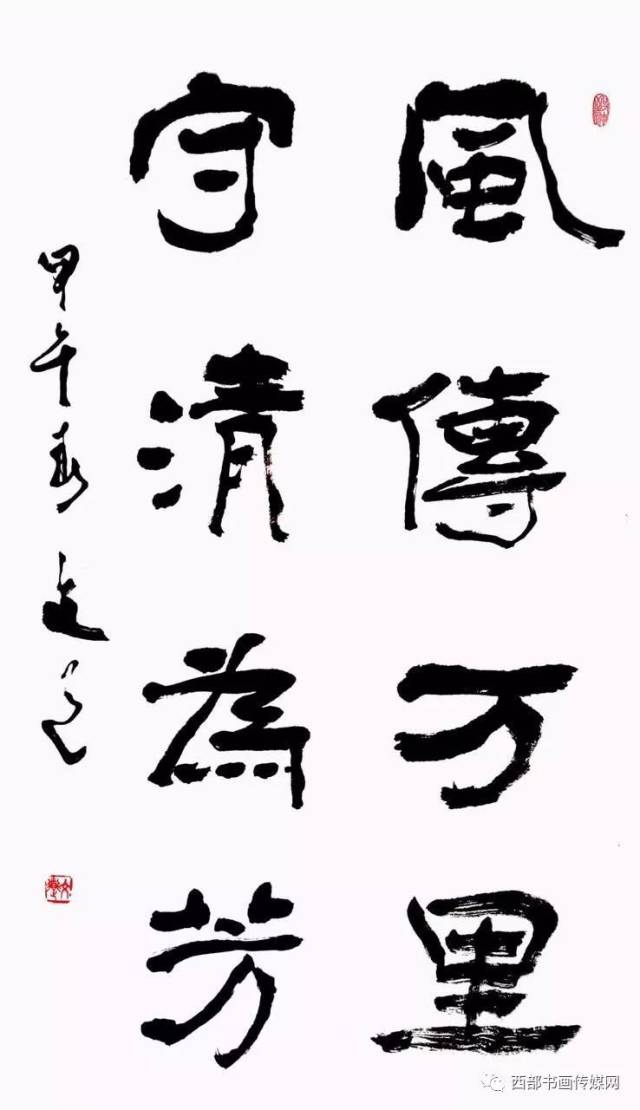 風傳万里
守清為芳
甲午春
西部书画传媒网